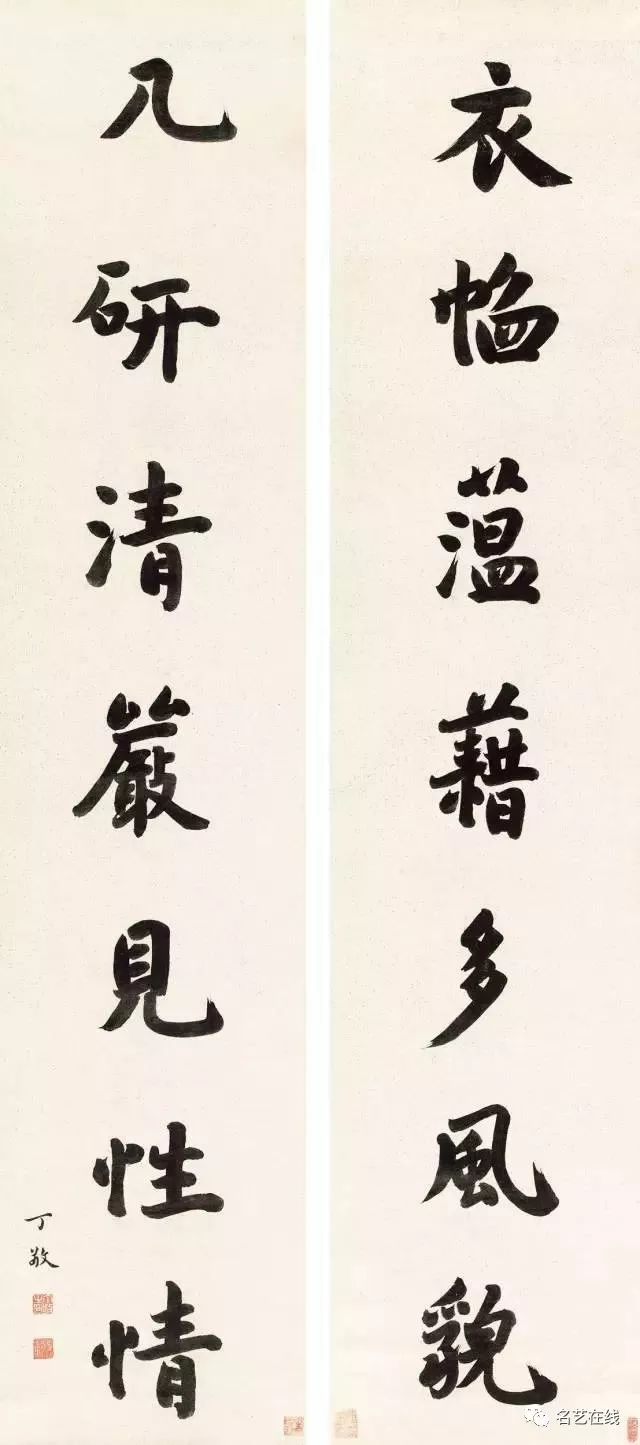 衣㡊薀藉多風貌
几研清嚴見性情
丁敬
名艺在线